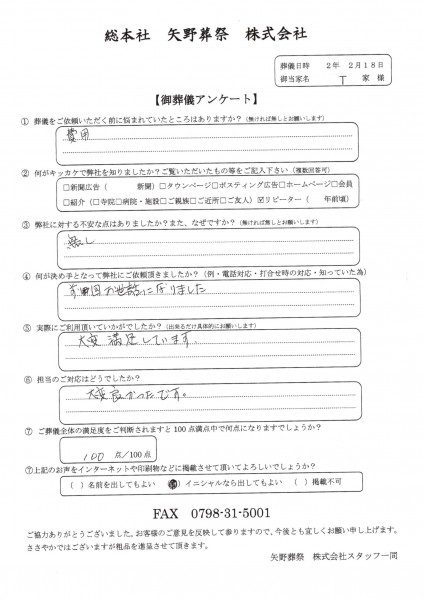 総本社 矢野葬祭 株式会社
葬儀日時 2年 2月18日
御当家名 T 家 様
【御葬儀アンケート】
① 葬儀をご依頼いただく前に悩まれていたところはありますか?(無ければ無しとお願いします)
費用
② 何がキッカケで弊社を知りましたか?ご覧いただいたもの等をご記入下さい(複数回答可)
□新聞広告( 新聞)□タウンページ□ポスティング広告□ホームページ□会員
□紹介(□寺院□病院・施設□ご親族□ご近所□ご友人)☑リピーター( 年前頃)
③ 弊社に対する不安な点はありましたか?また、なぜですか?(無ければ無しとお願いします)
無し
④ 何が決め手となって弊社にご依頼頂きましたか?(例・電話対応・打合せ時の対応・知っていた為)
前回お世話になりました
⑤ 実際にご利用頂いていかがでしたか?(出来るだけ具体的にお願いします)
大変満足しています。
⑥ 担当のご対応はどうでしたか?
大変良かったです。
⑦ ご葬儀全体の満足度をご判断されますと100点満点中で何点になりますでしょうか?
100 点/100点
⑦上記のお声をインターネットや印刷物などに掲載させて頂いてよろしいでしょうか?
( )名前を出してもよい ( )イニシャルなら出してもよい ( )掲載不可
FAX 0798-31-5001
ご協力ありがとうございました。お客様のご意見を反映して参りますので、今後とも宜しくお願い申し上げます。
ささやかではございますが粗品を進呈させて頂きます。
矢野葬祭 株式会社スタッフ一同